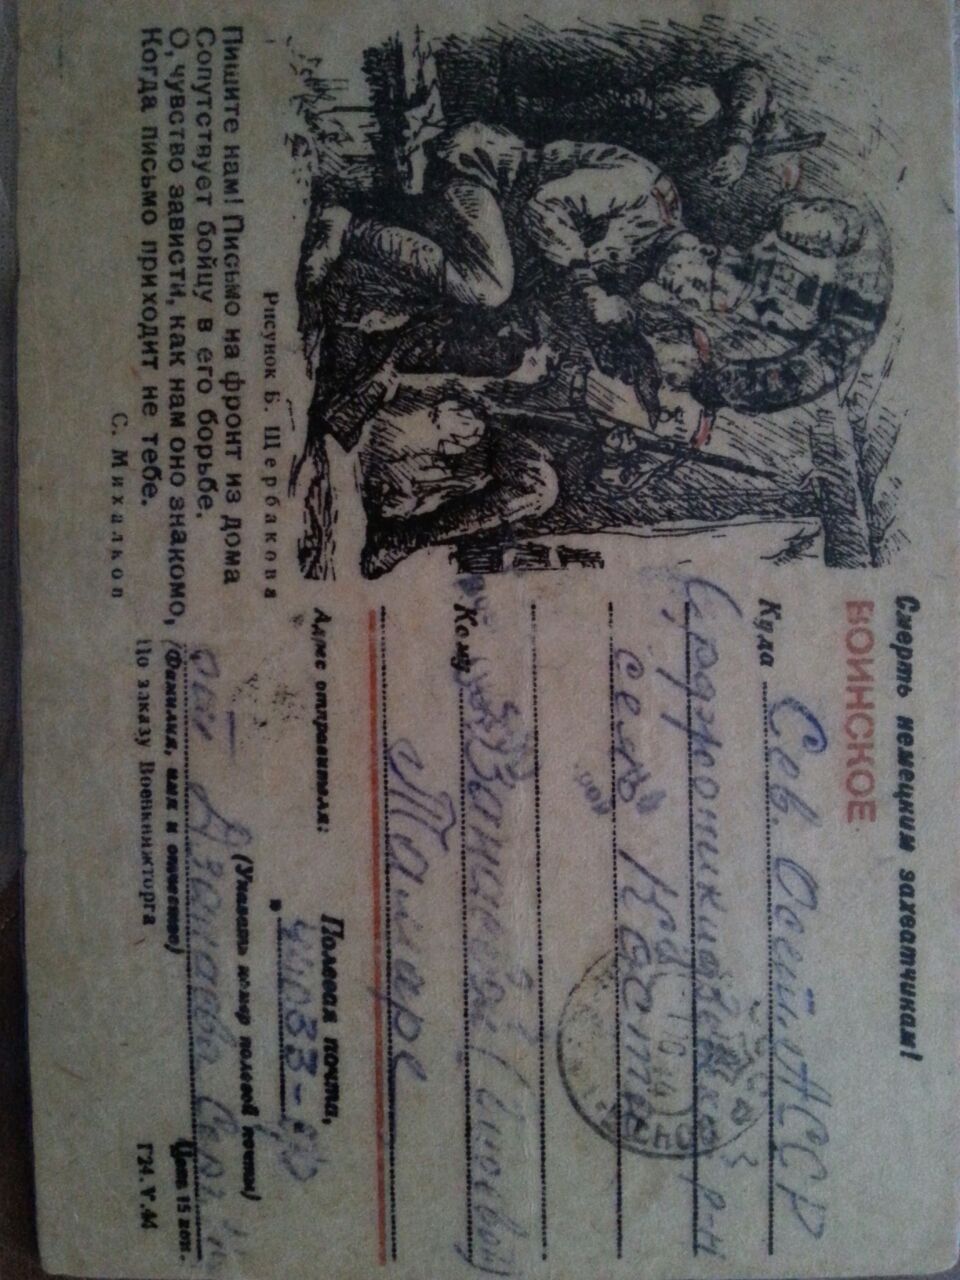 Смерть немецким захватчикам!
ВОИНСКОЕ
Куда Сев. Осет. АССР
Орджоникидзевск р-н
село
Кому
Тамаре
Рисунок Б. Щербакова
Пишите нам! Письмо на фронт из дома
Сопутствует бойцу в его борьбе.
О, чувство зависти, как нам оно знакомо,
Когда письмо приходит не тебе.
С. Михалков
Адрес отправителя:
Полевая почта,
44033-
(Указать номер полевой почты)
от
(Фамилия, имя и отчество)
По заказу Военкнижторга
Цена 15 коп.
Г24.V.44